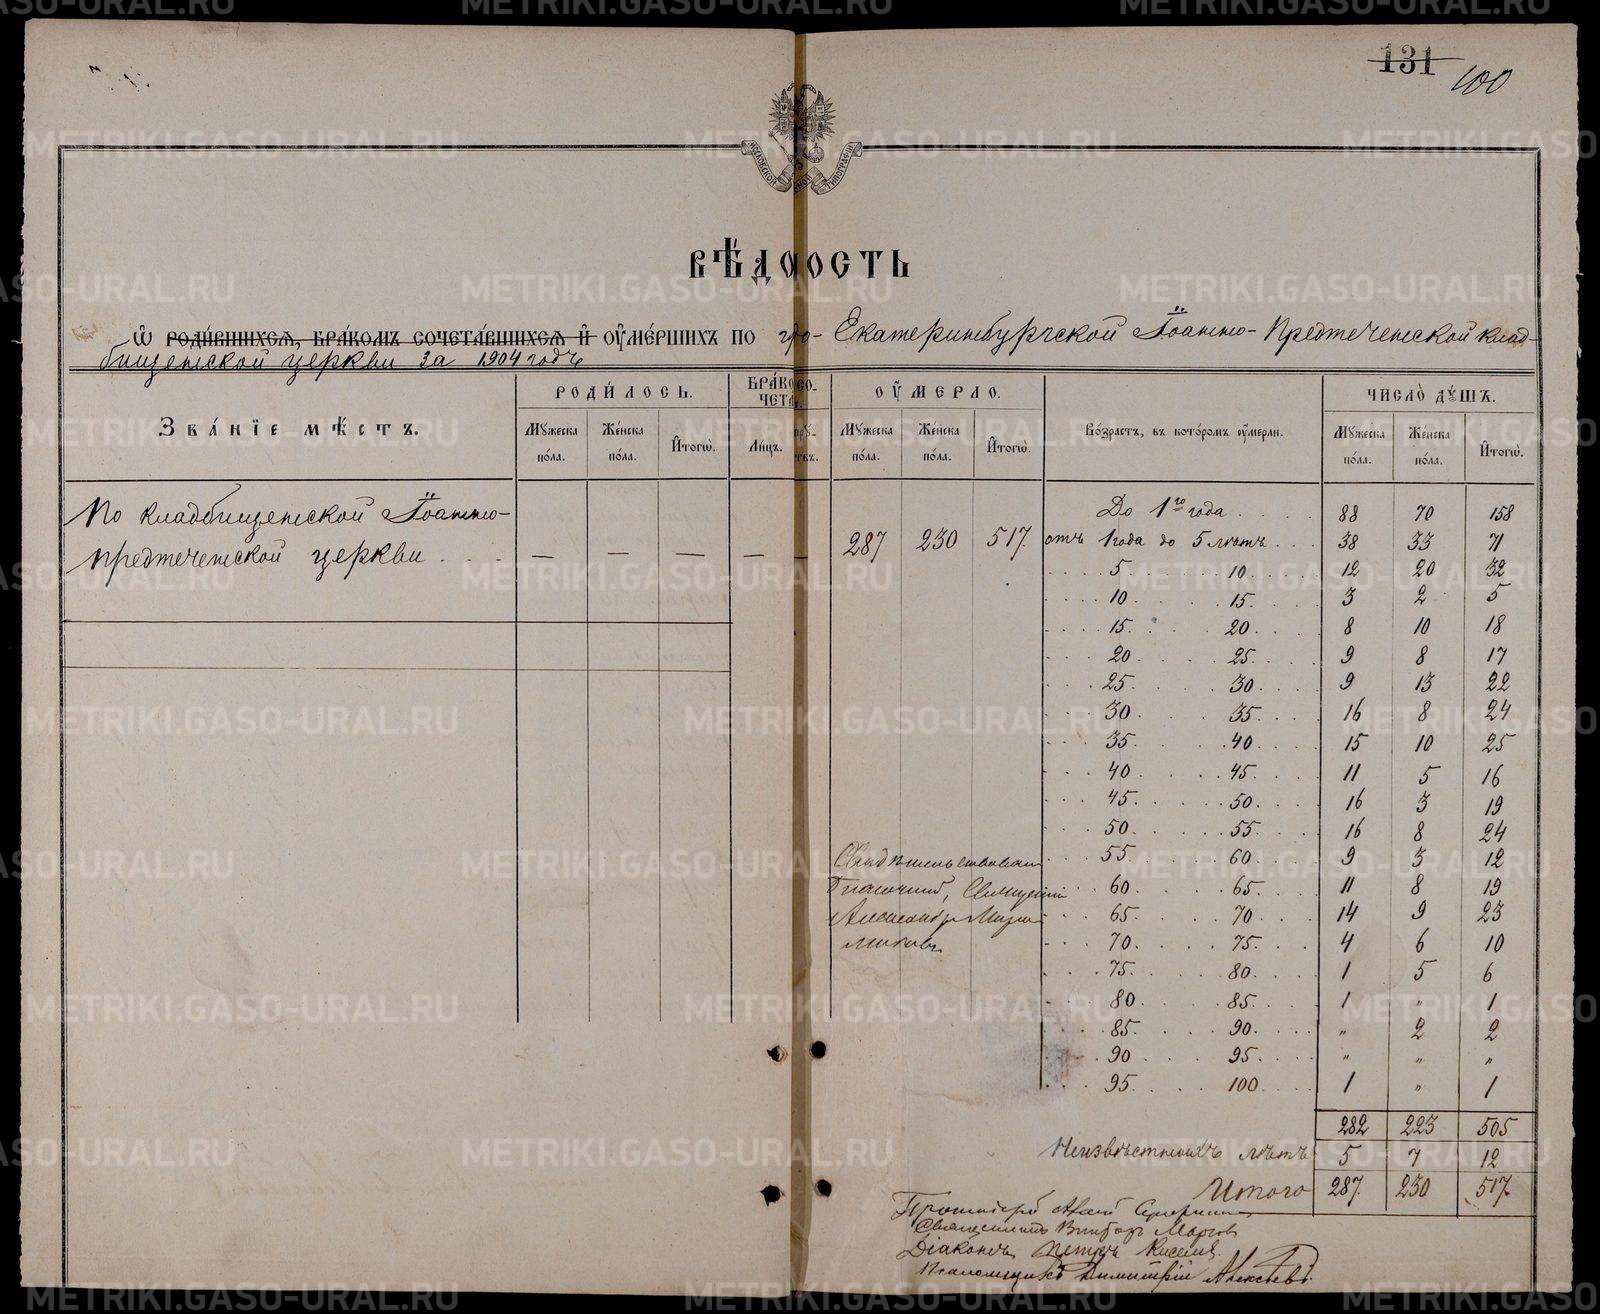 131
100
МОСКОВСКОЙ ТИПОГРАФІИ
ВѢДОМОСТЬ
Ѡ РОДИ́ВШИХСѦ, БРА́КОМЪ СОЧЕТА́ВШИХСѦ И҆ ОУ҆МЕ́РШИХЪ ПО гро- Екатеринбургской Іоанно-Предтеченской клад-
бищенской церкви за 1904 годъ
Зва́нїе мѣ́стъ.
РОДИ́ЛОСЬ.
Мꙋжеска по́ла.
Же́нска по́ла.
И҆тогѡ̀.
БРА́КОСО-ЧЕТА.
Ли́цъ.
ОУ҆́МЕРЛО.
Мꙋжеска по́ла.
Же́нска по́ла.
И҆тогѡ̀.
Во́зрастъ, въ кото́ромъ оу҆́мерли.
ЧИСЛО̀ ДꙊ́ШЪ.
Мꙋжеска по́ла.
Же́нска по́ла.
И҆тогѡ̀.
По кладбищенской Іоанно-
предтеченской церкви . . . — — — — — 287 230 517.
До 1го года . . . . 88 70 158
отъ 1 года до 5 лѣтъ . . . 38 33 71
. . . . 5 . . . . 10 . . . . 12 20 32
. . . . 10 . . . . 15 . . . . 3 2 5
. . . . 15 . . . . 20 . . . . 8 10 18
. . . 20 . . . . 25 . . . . 9 8 17
. . . 25 . . . . 30 . . . . 9 13 22
. . . 30 . . . . 35 . . . . 16 8 24
. . . 35 . . . . 40 . . . . 15 10 25
. . . 40 . . . . 45 . . . . 11 5 16
. . . 45 . . . . 50 . . . . 16 3 19
. . . 50 . . . . 55 . . . . 16 8 24
. . . 55 . . . . 60 . . . . 9 3 12
. . . 60 . . . . 65 . . . . 11 8 19
. . . 65 . . . . 70 . . . . 14 9 23
. . . 70 . . . . 75 . . . . 4 6 10
. . . 75 . . . . 80 . . . . 1 5 6
. . . 80 . . . . 85 . . . . 1 „ 1
. . . 85 . . . . 90 . . . . „ 2 2
. . . 90 . . . . 95 . . . . „ „ „
. . . 95 . . . . 100 . . . . 1 „ 1
282 223 505
Неизвѣстныхъ лѣтъ 5 7 12
Итого 287. 230 517.
Свидѣтельствовалъ
Благочинный, Священникъ
Александръ
Протоіерей
Священникъ Викторъ
Діаконъ Петръ Киселевъ
Псаломщикъ Димитрій Алексѣевъ.
METRIKI.GASO-URAL.RU